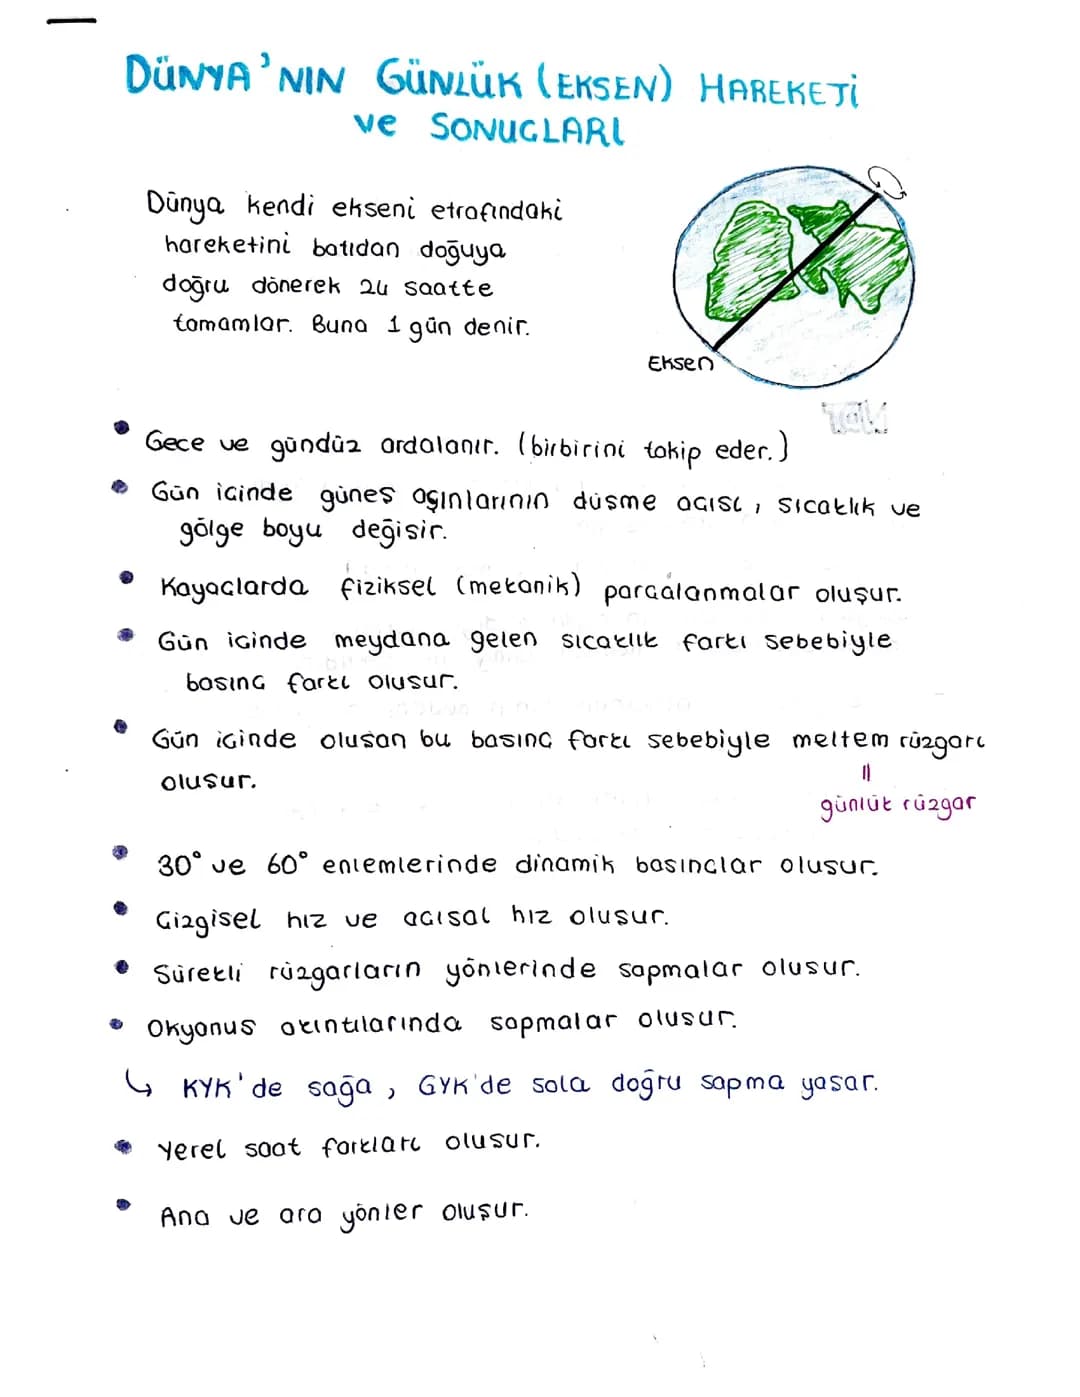 DÜNYA'NIN GÜNLÜK (EKSEN) HAREKETİ
ve SONUÇLARI
Dünya kendi ekseni etrafındaki
hareketini batıdan doğuya
doğru dönerek 24 saatte
tamamlar. Buna 1 gün denir.
Eksen
Gece ve gündüz ardalanır. (birbirini takip eder.)
Gün içinde güneş aşınlarının düşme açısı, sıcaklık ve
gölge boyu değişir.
Kayaçlarda fiziksel (mekanik) parçalanmalar oluşur.
Gün içinde meydana gelen sıcaklık farkı sebebiyle
basınç farkı oluşur.
Gün içinde oluşan bu basınç farkı sebebiyle meltem rüzgarı
oluşur.
=
günlük rüzgar
30° ve 60° enlemlerinde dinamik basınçlar oluşur.
Çizgisel hız ve açısal hız oluşur.
Sürekli rüzgarların yönlerinde sapmalar oluşur.
Okyanus akıntılarında sapmalar oluşur.
↳ KYK'de sağa, GYK'de sola doğru sapma yaşar.
Yerel saat farkları oluşur.
Ana ve ara yönler oluşur.